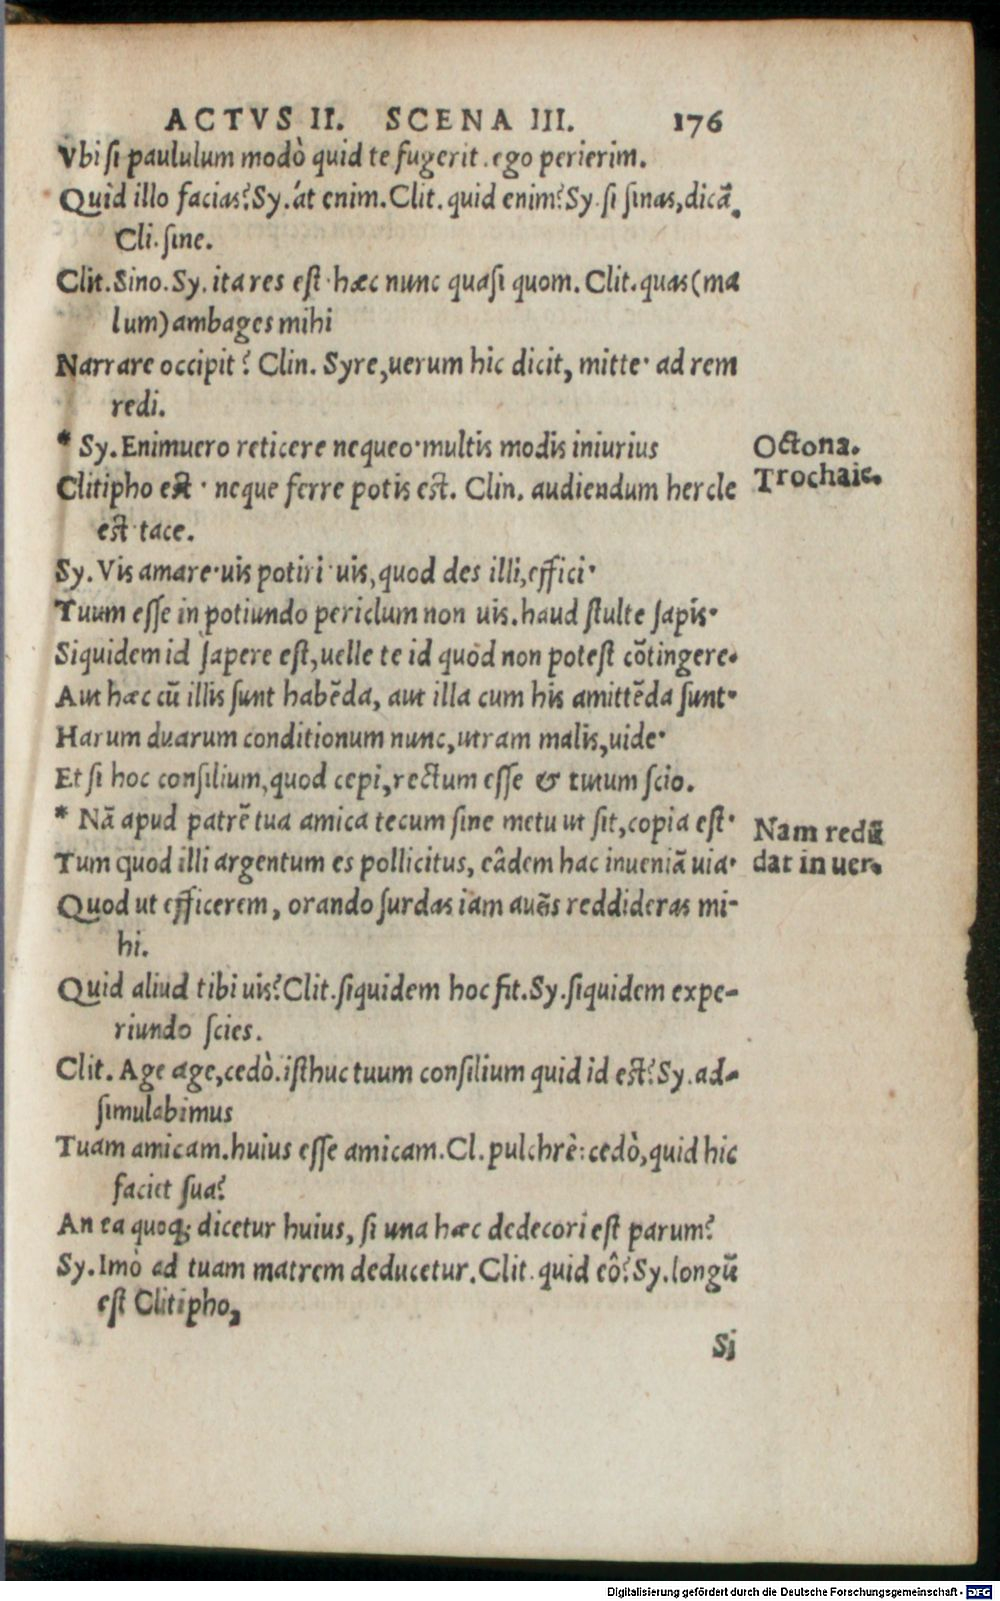 ACTVS II. SCENA III. 176
Vbi si paululum modò quid te fugerit. ego perierim.
Quid illo facias? Sy. át enim. Clit. quid enim? Sy. si sinas, dicã.
Cli. sine.
Clit. Sino. Sy. ita res est· hæc nunc quasi quom. Clit. quas (ma
lum) ambages mihi
Narrare occipit? Clin. Syre, uerum hic dicit, mitte· ad rem
redi.
* Sy. Enimuero reticere nequeo· multis modis iniurius
Octona.
Trochaic.
Clitipho est· neque ferre potis est. Clin. audiendum hercle
est· tace.
Sy. Vis amare· uis potiri· uis, quod des illi, effici·
Tuum esse in potiundo periclum non uis. haud stulte sapis·
Siquidem id sapere est, uelle te id quod non potest cõtingere.
Aut hæc cũ illis sunt habẽda, aut illa cum his amittẽda sunt·
Harum duarum conditionum nunc, utram malis, uide·
Et si hoc consilium, quod cepi, rectum esse & tutum scio.
* Nã apud patrẽ tua amica tecum sine metu ut sit, copia est·
Nam redũ
dat in uer.
Tum quod illi argentum es pollicitus, eâdem hac inueniã uia·
Quod ut efficerem, orando surdas iam aurẽs reddideras mi-
hi.
Quid aliud tibi uis? Clit. siquidem hoc fit. Sy. siquidem expe-
riundo scies.
Clit. Age age, cedò. isthuc tuum consilium quid id est? Sy. ad-
simulabimus
Tuam amicam. huius esse amicam. Cl. pulchrè: cedò, quid hic
faciet sua?
An ea quoq; dicetur huius, si una hæc dedecori est parum?
Sy. Imò ad tuam matrem deducetur. Clit. quid eô? Sy. longũ
est Clitipho,
Si
Digitalisierung gefördert durch die Deutsche Forschungsgemeinschaft - DFG